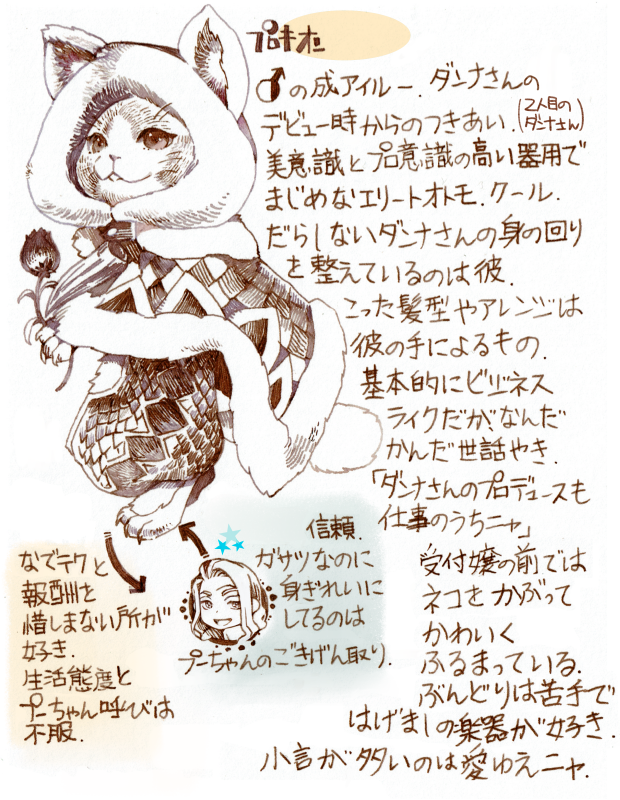 プロキオン
♂の成アイルー. ダンナさんの
デビュー時からのつきあい. (2人目のダンナさん)
美意識とプロ意識の高い器用で
まじめなエリートオトモ. クール.
だらしないダンナさんの身の回り
を整えているのは彼.
こった髪型やアレンジは
彼の手によるもの.
基本的にビジネス
ライクだがなんだ
かんだ世話やき.
「ダンナさんのプロデュースも
仕事のうちニャ」
受付嬢の前では
ネコをかぶって
かわいく
ふるまっている.
ぶんどりは苦手で
はげましの楽器が好き.
小言が多いのは愛ゆえニャ.
信頼.
ガサツなのに
身ぎれいに
してるのは
プーちゃんのごきげん取り.
なでテクと
報酬を
惜しまない所が
好き.
生活態度と
プーちゃん呼びは
不服.